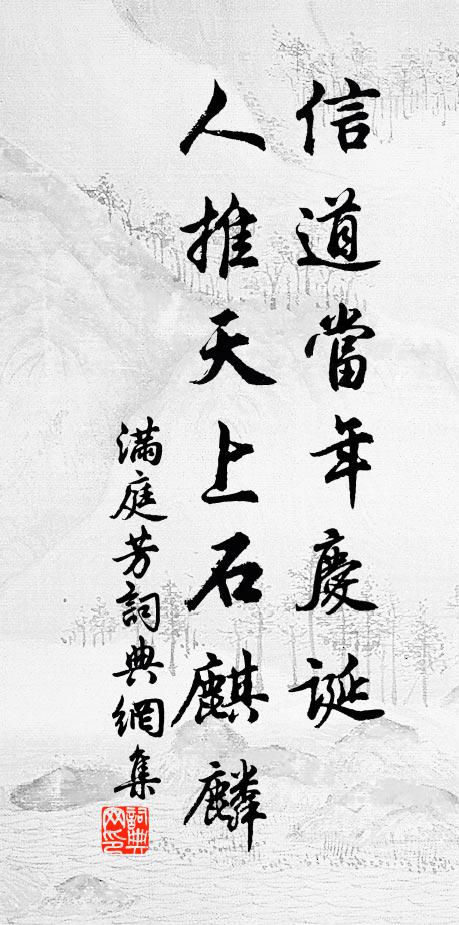 信道當年慶誕
人推天上石麒麟
滿庭芳詞典網集
詞典網印